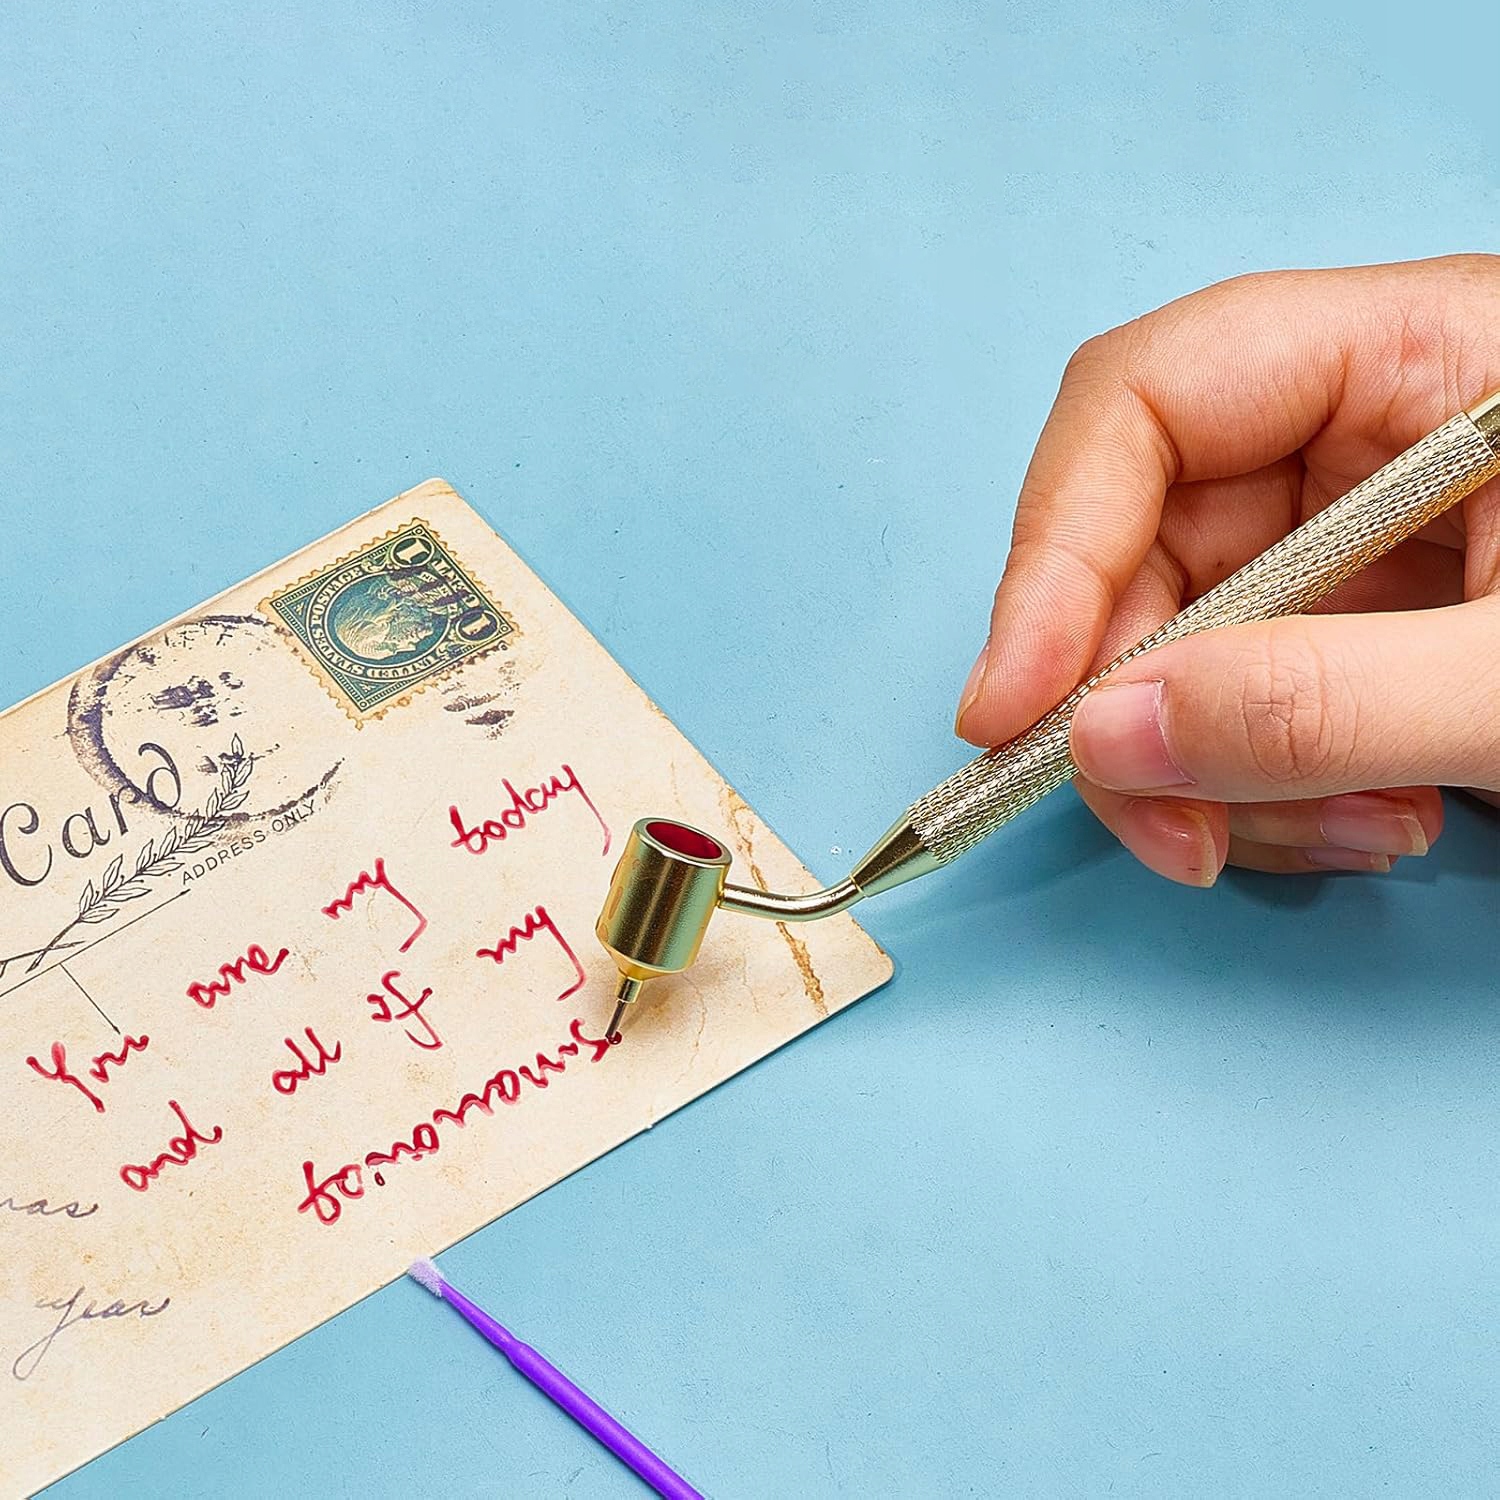 UNITED STATES POSTAGE
1 CENT 1
Card
ADDRESS ONLY
You are my today
and all if my
tomorrows
year